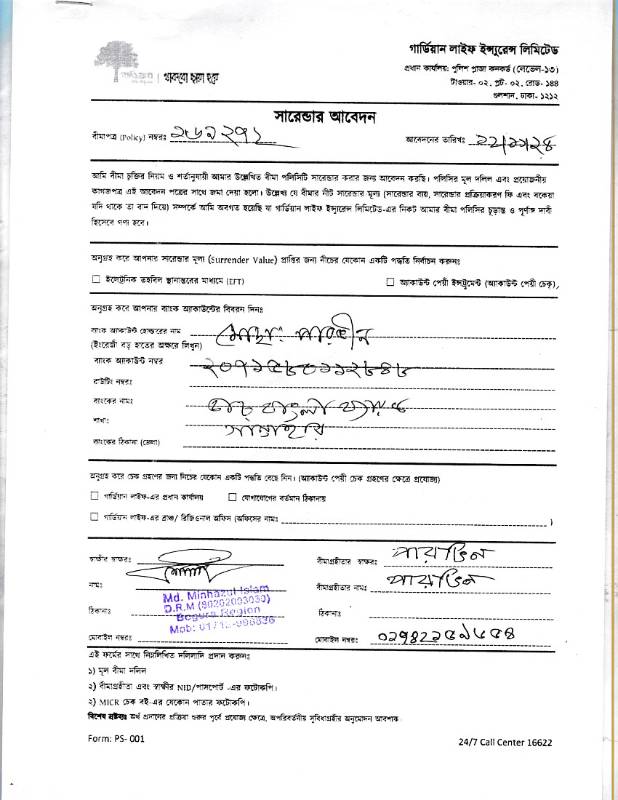 গার্ডিয়ান লাইফ ইন্স্যুরেন্স লিমিটেড
প্রধান কার্যালয়: পুলিশ প্লাজা কনকর্ড (লেভেল-১৩)
টাওয়ার- ০২, প্লট- ০২, রোড- ১৪৪
গুলশান, ঢাকা- ১২১২
সারেন্ডার আবেদন
বীমাপত্র (Policy) নম্বরঃ
আবেদনের তারিখঃ
আমি বীমা চুক্তির নিয়ম ও শর্তানুযায়ী আমার উল্লেখিত বীমা পলিসিটি সারেন্ডার করার জন্য আবেদন করছি। পলিসির মূল দলিল এবং প্রয়োজনীয়
কাগজপত্র এই আবেদন পত্রের সাথে জমা দেয়া হলো। উল্লেখ্য যে বীমার নীট সারেন্ডার মূল্য (সারেন্ডার ব্যয়, সারেন্ডার প্রক্রিয়াকরণ ফি এবং বকেয়া
যদি থাকে তা বাদ দিয়ে) সম্পর্কে আমি অবগত হয়েছি যা গার্ডিয়ান লাইফ ইন্স্যুরেন্স লিমিটেড-এর নিকট আমার বীমা পলিসির চূড়ান্ত ও পূর্ণাঙ্গ দাবী
হিসেবে গণ্য হবে।
অনুগ্রহ করে আপনার সারেন্ডার মূল্য (Surrender Value) প্রাপ্তির জন্য নীচের যেকোন একটি পদ্ধতি নির্বাচন করুনঃ
ইলেট্রনিক তহবিল স্থানান্তরের মাধ্যমে (EFT) অ্যাকাউন্ট পেয়ী ইন্সট্রুমেন্ট (অ্যাকাউন্ট পেয়ী চেক),
অনুগ্রহ করে আপনার ব্যাংক অ্যাকাউন্টের বিবরন দিনঃ
ব্যাংক অ্যাকাউন্ট হোল্ডারের নাম
(ইংরেজী বড় হাতের অক্ষরে লিখুন)
ব্যাংক অ্যাকাউন্ট নম্বর
রাউটিং নম্বরঃ
ব্যাংকের নামঃ ডাচ বাংলা ব্যাংক
শাখাঃ সান্তাহার
ব্যাংকের ঠিকানা (জেলা)
অনুগ্রহ করে চেক গ্রহণের জন্য নিচের যেকোন একটি পদ্ধতি বেছে নিন। (অ্যাকাউন্ট পেয়ী চেক গ্রহণের ক্ষেত্রে প্রযোজ্য)
গার্ডিয়ান লাইফ-এর প্রধান কার্যালয় যোগাযোগের বর্তমান ঠিকানায়
গার্ডিয়ান লাইফ-এর ব্রাঞ্চ/ রিজিওনাল অফিস (অফিসের নামঃ )
স্বাক্ষীর স্বাক্ষরঃ
বীমাগ্রহীতার স্বাক্ষরঃ পারভিন
নামঃ Md. Minhazul Islam
বীমাগ্রহীতার নামঃ পারভিন
D.R.M (80202003030)
ঠিকানাঃ Bogura Region
ঠিকানাঃ
মোবাইল নম্বরঃ
মোবাইল নম্বরঃ
এই ফর্মের সাথে নিম্নলিখিত দলিলাদি প্রদান করুনঃ
১) মূল বীমা দলিল
২) বীমাগ্রহীতা এবং স্বাক্ষীর NID/পাসপোর্ট -এর ফটোকপি।
২) MICR চেক বই-এর যেকোন পাতার ফটোকপি।
বিশেষ দ্রষ্টব্যঃ অর্থ প্রদানের প্রক্রিয়া শুরুর পূর্বে প্রযোজ্য ক্ষেত্রে, অপরিবর্তনীয় সুবিধাগ্রহীর অনুমোদন আবশ্যক
Form: PS- 001
24/7 Call Center 16622